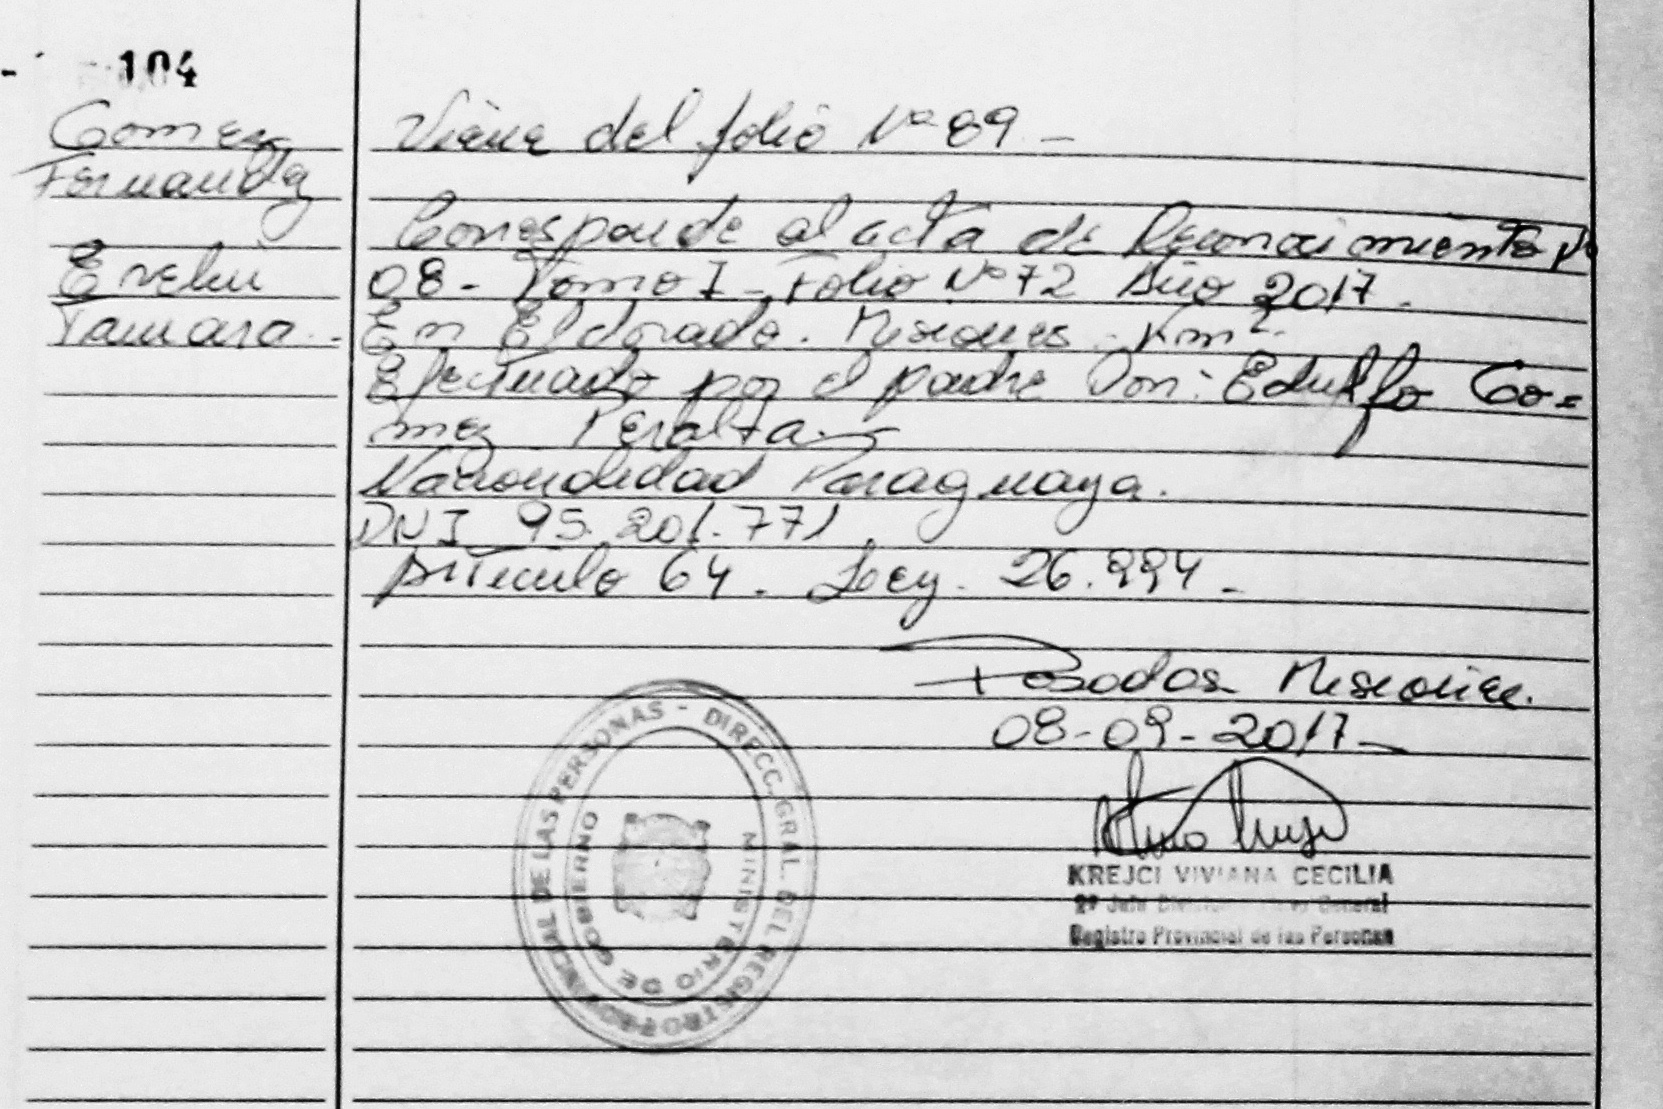 104
Gomez
Fernandez
Evelin
Tamara.-
Viene del folio Nº 89 -
Corresponde al acta de Reconocimiento Nº
08 - Tomo I - Folio Nº 72 Año 2017.
En Eldorado. Misiones - Km 2.
Efectuado por el padre Don: Edulfo Go=
mez Peralta.-
Nacionalidad Paraguaya.
DNI 95.201.771
Artículo 64. Ley. 26.994.-
Posadas Misiones.
08-09-2017-
KREJCI VIVIANA CECILIA
2º Jefe General
Registro Provincial de las Personas
DIRECC. GRAL. DEL REGISTRO PROVINCIAL DE LAS PERSONAS -
MINISTERIO DE GOBIERNO